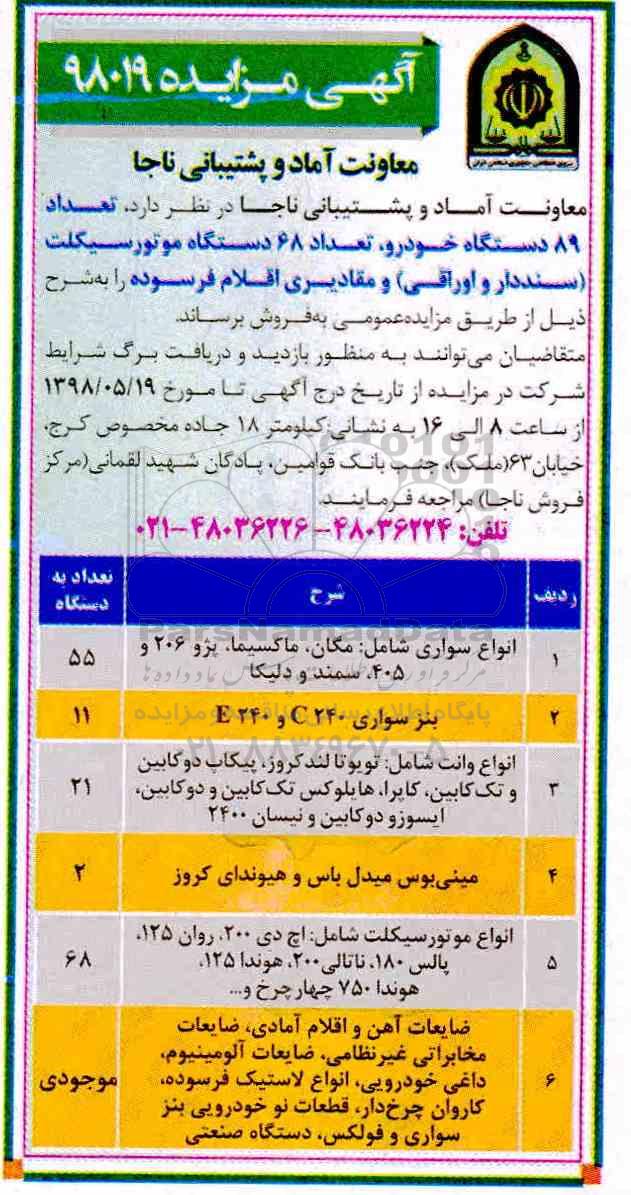 آگهی مزایده ۹۸۰۱۹
معاونت آماد و پشتیبانی ناجا
معاونت آماد و پشتیبانی ناجا در نظر دارد، تعداد
۸۹ دستگاه خودرو، تعداد ۶۸ دستگاه موتورسیکلت
(سنددار و اوراقی) و مقادیری اقلام فرسوده را به‌شرح
ذیل از طریق مزایده‌عمومی به‌فروش برساند.
متقاضیان می‌توانند به منظور بازدید و دریافت برگ شرایط
شرکت در مزایده از تاریخ درج آگهی تا مورخ ۱۳۹۸/۰۵/۱۹
از ساعت ۸ الی ۱۶ به نشانی:کیلومتر ۱۸ جاده مخصوص کرج،
خیابان۶۳(ملک)، جنب بانک قوامین، پادگان شهید لقمانی(مرکز
فروش ناجا) مراجعه فرمایند.
تلفن: ۴۸۰۳۶۲۲۴ - ۴۸۰۳۶۲۲۶-۰۲۱
ردیف شرح تعداد به دستگاه
۱ انواع سواری شامل: مگان، ماکسیما، پژو ۲۰۶ و
۴۰۵، سمند و دلیکا ۵۵
۲ بنز سواری C ۲۴۰ و E ۲۴۰ ۱۱
۳ انواع وانت شامل: تویوتا لندکروز، پیکاپ دوکابین
و تک‌کابین، کاپرا، هایلوکس تک‌کابین و دوکابین،
ایسوزو دوکابین و نیسان ۲۴۰۰ ۲۱
۴ مینی‌بوس میدل باس و هیوندای کروز ۲
۵ انواع موتورسیکلت شامل: اچ دی ۲۰۰، روان ۱۲۵،
پالس ۱۸۰، ناتالی۲۰۰، هوندا ۱۲۵،
هوندا ۷۵۰ چهارچرخ و... ۶۸
۶ ضایعات آهن و اقلام آمادی، ضایعات
مخابراتی غیرنظامی، ضایعات آلومینیوم،
داغی خودرویی، انواع لاستیک فرسوده،
کاروان چرخ‌دار، قطعات نو خودرویی بنز
سواری و فولکس، دستگاه صنعتی موجودی
ParsNamadData
پایگاه اطلاع رسانی مناقصه و مزایده
۰۲۱-۸۸۳۴۹۶۷۰-۵